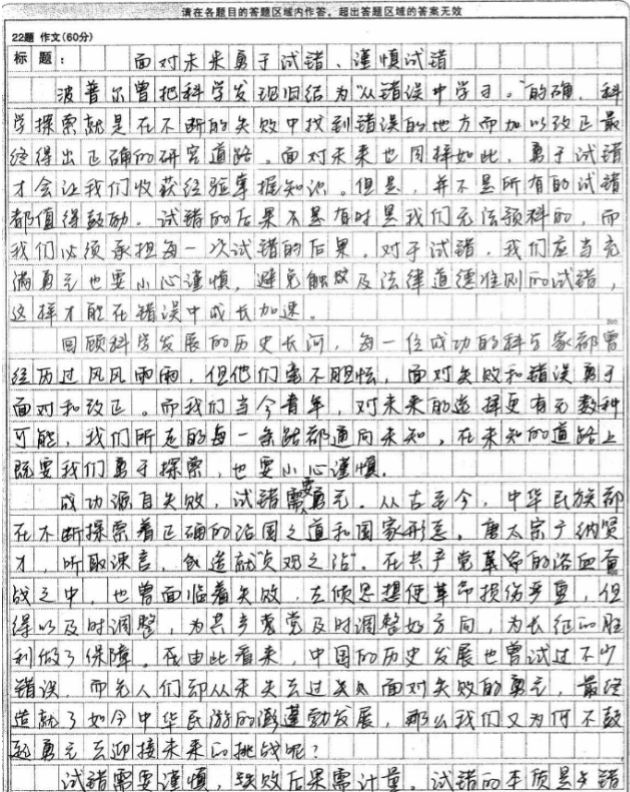 请在各题目的答题区域内作答，超出答题区域的答案无效
22题 作文(60分)
标题： 面对未来勇于试错、谨慎试错
波普尔曾把科学发现归结为"从错误中学习。"的确，科
学探索就是在不断的失败中找到错误的地方而加以改正最
终得出正确的研究道路。面对未来也同样如此，勇于试错
才会让我们收获经验掌握知识。但是，并不是所有的试错
都值得鼓励。试错的后果不是有时是我们无法预料的，而
我们必须承担每一次试错的后果。对于试错，我们应当充
满勇气也要小心谨慎，避免触及法律道德准则的试错，
这样才能在错误中成长加速。
回顾科学发展的历史长河，每一位成功的科学家都曾
经历过风风雨雨，但他们毫不胆怯，面对失败和错误勇于
面对和改正。而我们当今青年，对未来的选择更有无数种
可能，我们所走的每一条路都通向未知，在未知的道路上
既要我们勇于探索，也要小心谨慎。
成功源自失败，试错需要勇气。从古至今，中华民族都
在不断探索着正确的治国之道和国家形态。唐太宗广纳贤
才，听取谏言，创造就"贞观之治"。在共产党革命的浴血奋
战之中，也曾面临着失败，左倾思想使革命损伤严重，但
得以及时调整，为共产党及时调整好方向，为长征的胜
利做了保障。由此看来，中国的历史发展也曾试过不少
错误，而先人们却从未失去过面对失败的勇气，最终
造就了如今中华民族的蓬勃发展，那么我们又为何不鼓
起勇气去迎接未来的挑战呢？
试错需要谨慎，失败后果需计量。试错的本质是失错